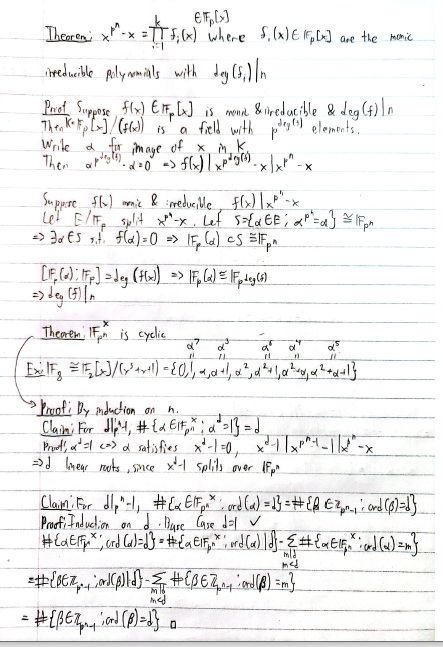 ∈ 𝔽_p[x]
Theorem: x^{p^n} - x = ∏_{i=1}^{k} f_i(x) where f_i(x) ∈ 𝔽_p[x] are the monic
irreducible polynomials with deg(f_i) | n
Proof: Suppose f(x) ∈ 𝔽_p[x] is monic & irreducible & deg(f) | n
Then K = 𝔽_p[x]/(f(x)) is a field with p^{deg(f)} elements.
Write α for image of x in K.
Then α^{p^{deg(f)}} - α = 0 => f(x) | x^{p^{deg(f)}} - x | x^{p^n} - x
Suppose f(x) monic & irreducible f(x) | x^{p^n} - x
Let E/𝔽_p split x^{p^n} - x. Let S = {α ∈ E ; α^{p^n} = α} ≅ 𝔽_{p^n}
=> ∃α ∈ S s.t. f(α) = 0 => 𝔽_p(α) ⊂ S ≅ 𝔽_{p^n}
[𝔽_p(α) : 𝔽_p] = deg(f(x)) => 𝔽_p(α) ≅ 𝔽_{p^{deg(f)}}
=> deg(f) | n
Theorem: 𝔽_{p^n}^× is cyclic
α^7 α^3 α^6 α^4 α^5
Ex: 𝔽_8 ≅ 𝔽_2[x]/(x^3+x+1) = {0, 1, α, α+1, α^2, α^2+1, α^2+α, α^2+α+1}
Proof: By induction on n.
Claim: For d | p^n - 1, #{α ∈ 𝔽_{p^n}^× ; α^d = 1} = d
Proof: α^d = 1 <=> α satisfies x^d - 1 = 0, x^d - 1 | x^{p^n - 1} - 1 | x^{p^n} - x
=> d linear roots, since x^d - 1 splits over 𝔽_{p^n}
Claim: For d | p^n - 1, #{α ∈ 𝔽_{p^n}^× ; ord(α) = d} = #{β ∈ ℤ_{p^n - 1} ; ord(β) = d}
Proof: Induction on d. Base Case d=1 ✓
#{α ∈ 𝔽_{p^n}^× ; ord(α) = d} = #{α ∈ 𝔽_{p^n}^× ; ord(α) | d} - ∑_{m|d, m<d} #{α ∈ 𝔽_{p^n}^× ; ord(α) = m}
= #{β ∈ ℤ_{p^n - 1} ; ord(β) | d} - ∑_{m|d, m<d} #{β ∈ ℤ_{p^n - 1} ; ord(β) = m}
= #{β ∈ ℤ_{p^n - 1} ; ord(β) = d} □